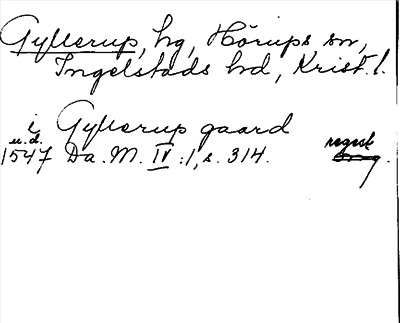 Gyllerup, hg, Hörups sn,
Ingelstads hd, Krist. l.
i Gyllerup gaard
u.d.
1547 Da. M. IV:1, s. 314. regest